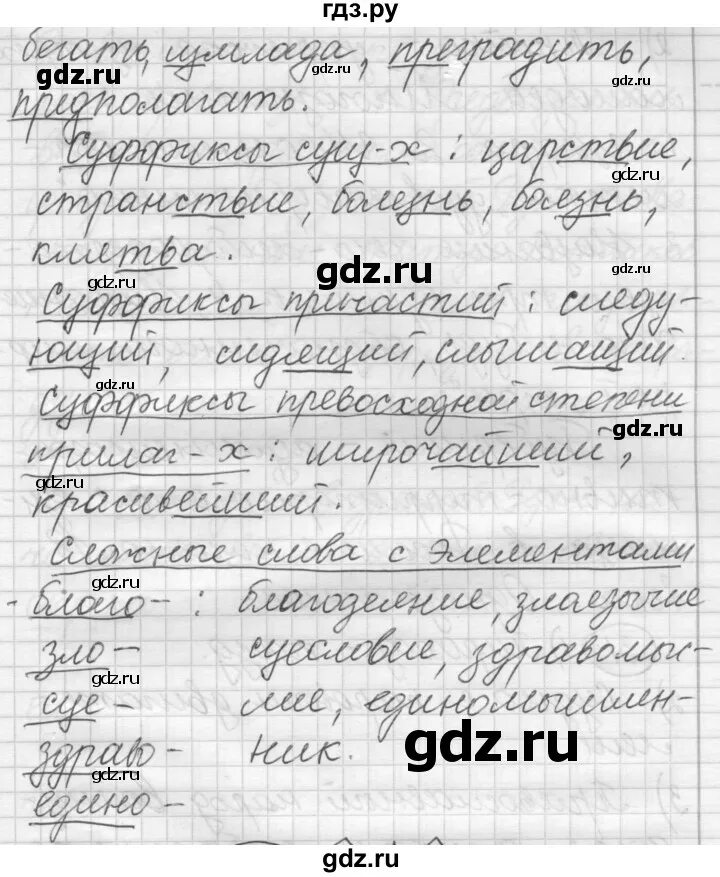 гдз.ру
бегать, измлада, преградить,
предполагать.
Суффиксы сущ-х: царствие,
странствие, болезнь, боязнь,
клятва.
Суффиксы причастий: следу-
ющий, сидящий, слышащий.
Суффиксы превосходной степени
прилаг-х: широчайший,
красивейший.
Сложные слова с элементами
- благо-: благоделние, злаезычие
зло- суесловие, здравомыс-
суе- лие, единомышлен-
здраво- ник.
едино-
gdz.ru
gdz.ru
gdz.ru
gdz.ru
gdz.ru
gdz.ru
gdz.ru
gdz.ru
gdz.ru
gdz.ru
gdz.ru
gdz.ru
gdz.ru
gdz.ru